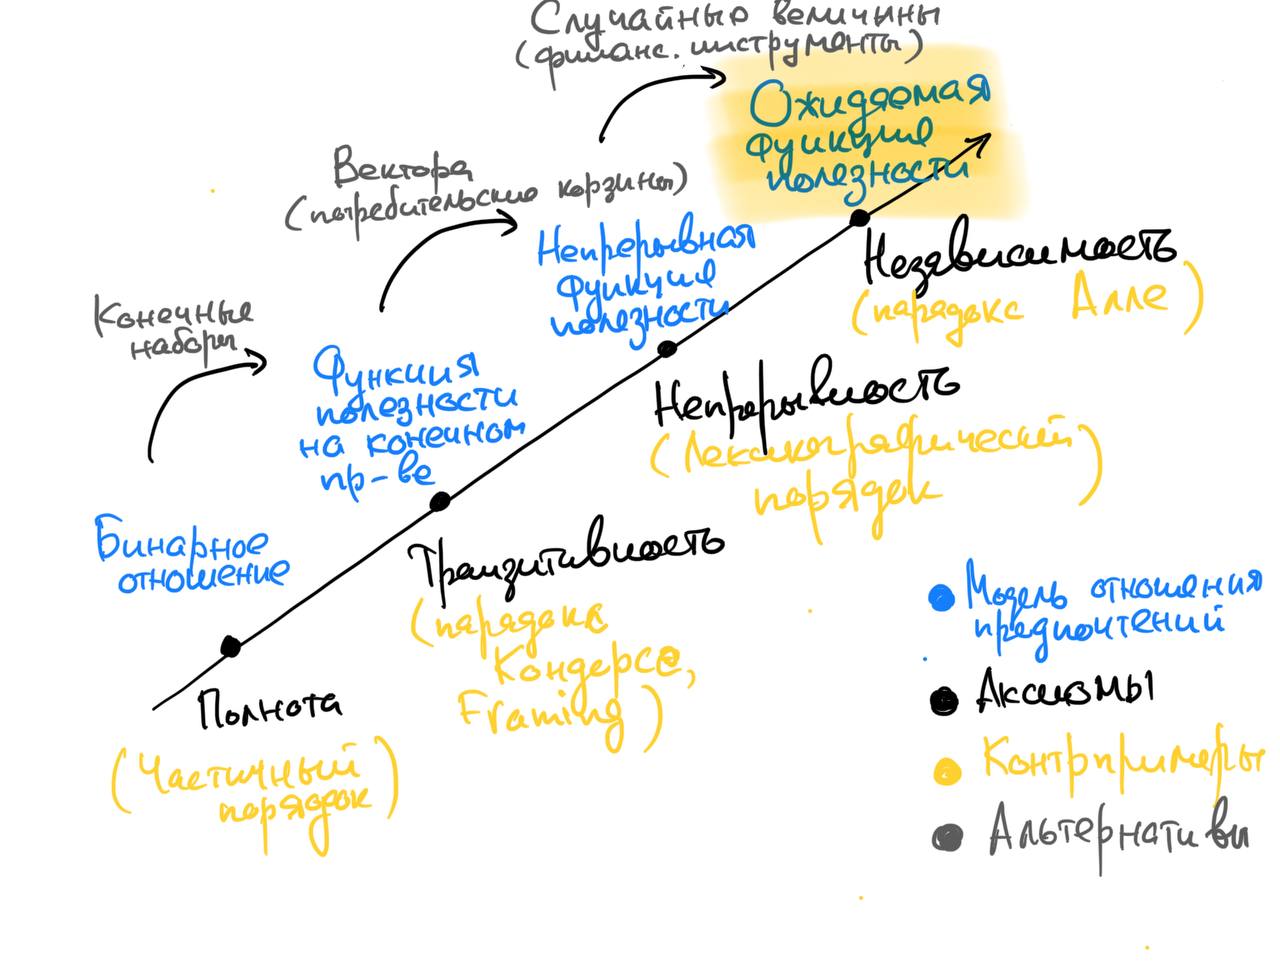 Случайные величины
(финанс. инструменты)
Ожидаемая
функция
полезности
Вектора
(потребительские корзины)
Непрерывная
функция
полезности
Независимость
(парадокс Алле)
Конечные
наборы
Функция
полезности
на конечном
пр-ве
Непрерывность
(Лексикографический
порядок)
Бинарное
отношение
Транзитивность
(парадокс
Кондорсе,
Framing)
Полнота
(Частичный
порядок)
Модель отношения
предпочтений
Аксиомы
Контрпримеры
Альтернативы